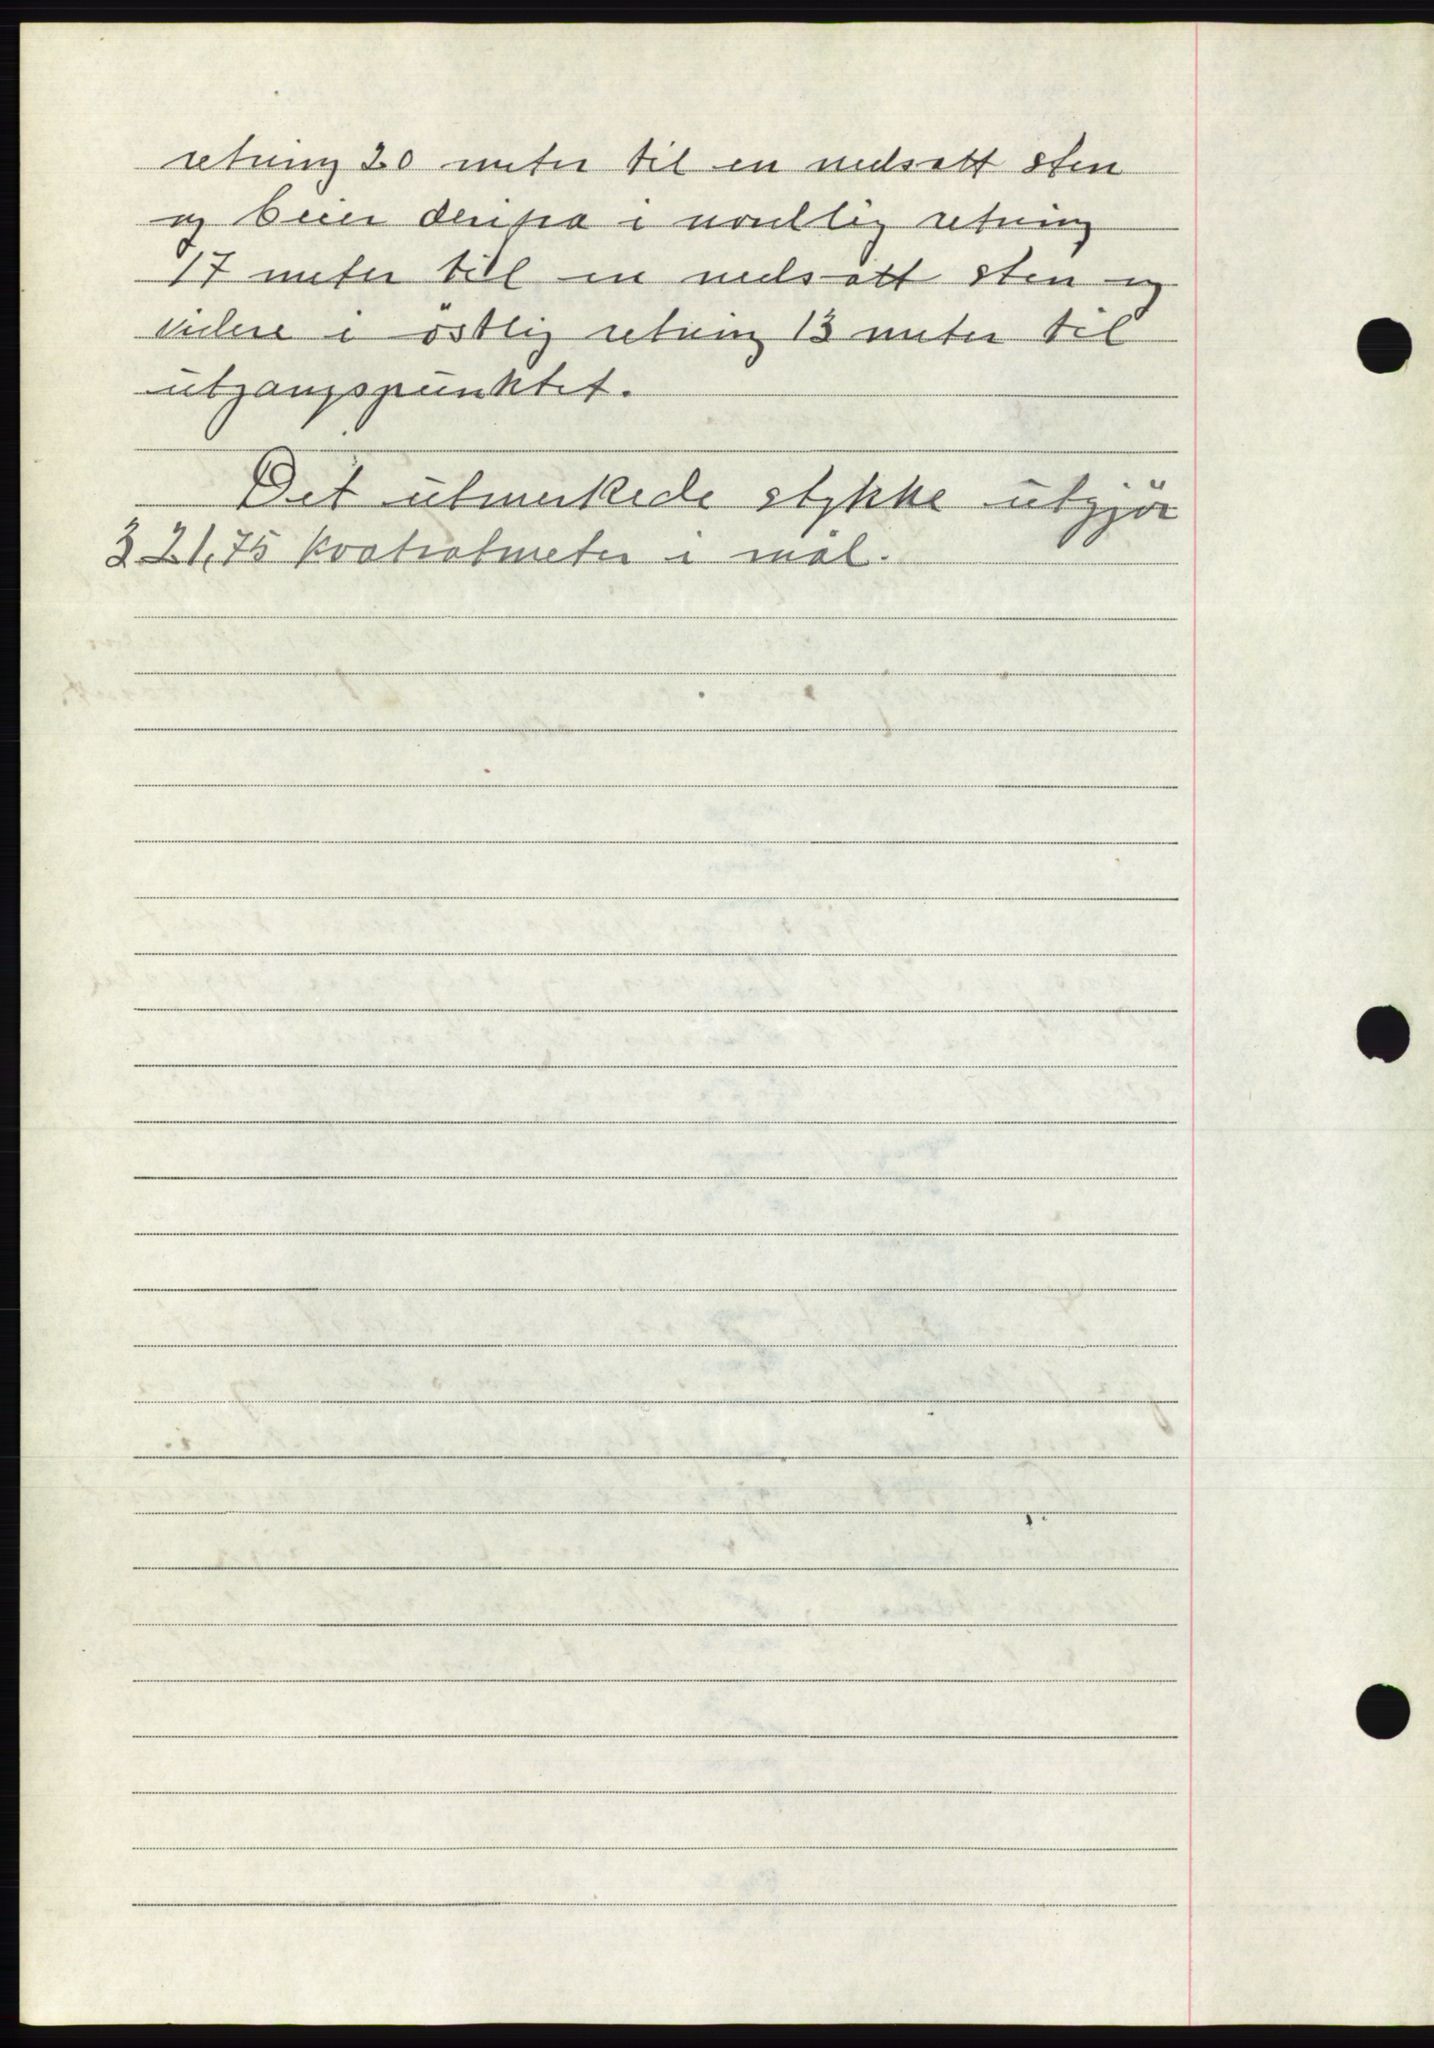 retning 20 meter til en nedsatt sten
og böier derifra i nordlig retning
17 meter till en nedsatt sten og
videre i östlig retning 13 meter til
utgangspunktet.
Det utmerkede stykke utgjör
321,75 kvatratmeter i mål.